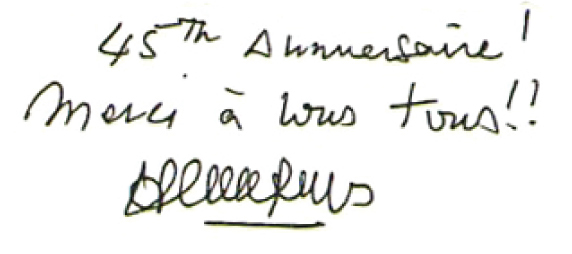 45Th Anniversaire!
Merci à vous tous!!